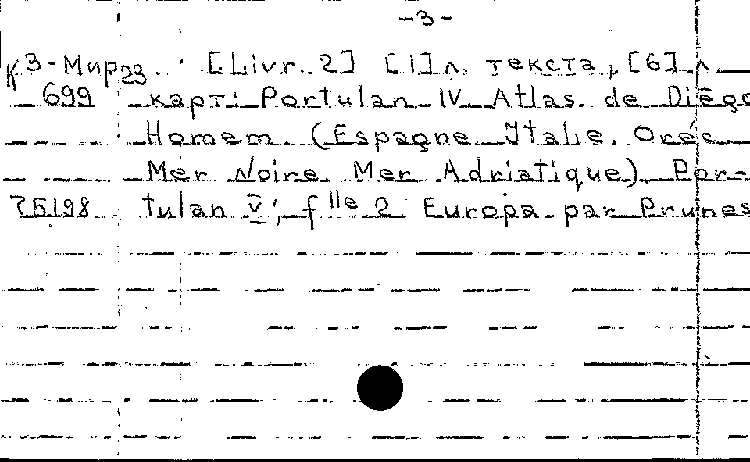 -3-
К 3-Мир 23 [Livr. 2] [1] л. текста, [6] л
699 карт: Portulan IV Atlas de Diego
Homem (Espagne Italie.
Mer Noire Mer Adriatique) Por-
75198 tulan V; flle 2 Europa par Prunes